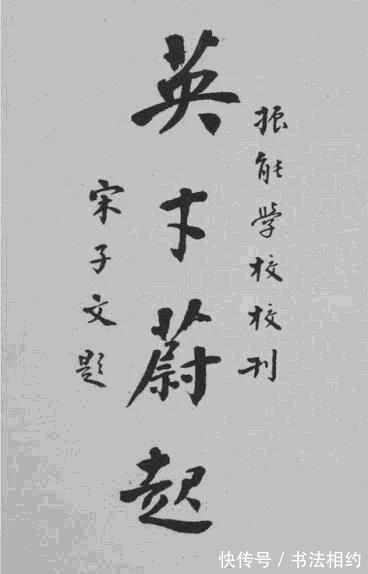 振能学校校刊
英才蔚起
宋子文题
快传号 / 书法相约